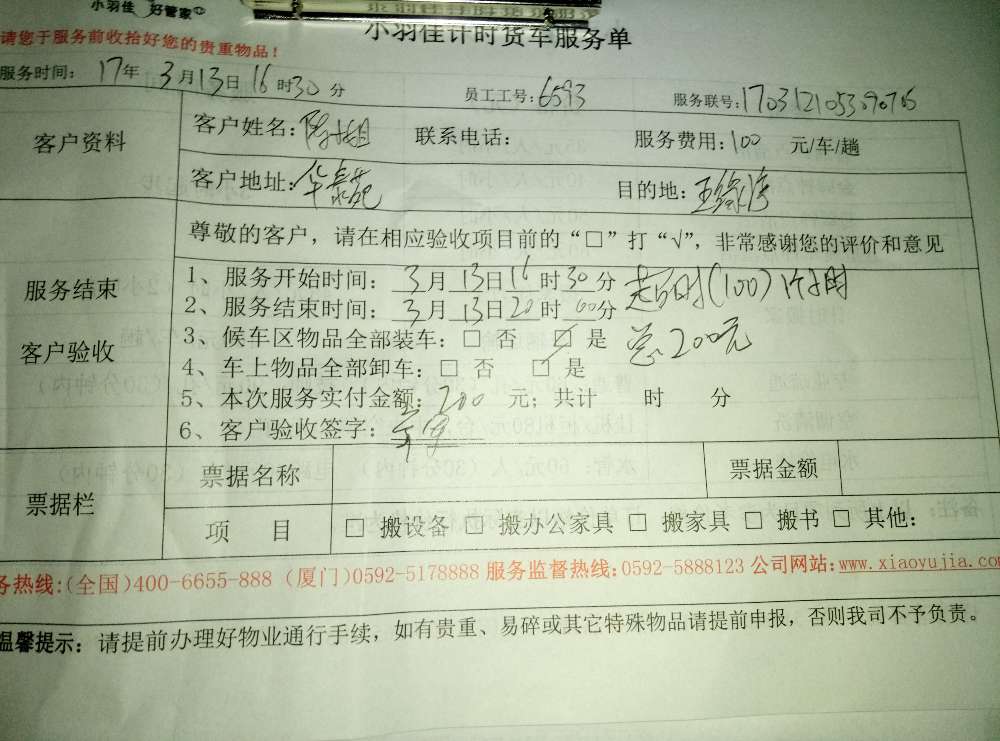 小羽佳 好管家
请您于服务前收拾好您的贵重物品！
小羽佳计时货车服务单
服务时间：17年 3月13日 16时30分 员工工号：6593 服务联号：
客户资料
客户姓名：陈小姐 联系电话： 服务费用：100 元/车/趟
客户地址：华泰苑 目的地：
服务结束
客户验收
尊敬的客户，请在相应验收项目前的“□”打“√”，非常感谢您的评价和意见
1、服务开始时间： 3月13日16时30分 超时(100)1小时
2、服务结束时间： 3月13日20时00分
3、候车区物品全部装车：□ 否 ☑ 是 总200元
4、车上物品全部卸车：□ 否 ☑ 是
5、本次服务实付金额：200 元；共计 时 分
6、客户验收签字：
票据栏
票据名称 票据金额
项 目 □ 搬设备 □ 搬办公家具 □ 搬家具 □ 搬书 □ 其他：
务热线:(全国)400-6655-888 (厦门)0592-5178888 服务监督热线:0592-5888123 公司网站:www.xiaoyujia.com
温馨提示：请提前办理好物业通行手续，如有贵重、易碎或其它特殊物品请提前申报，否则我司不予负责。